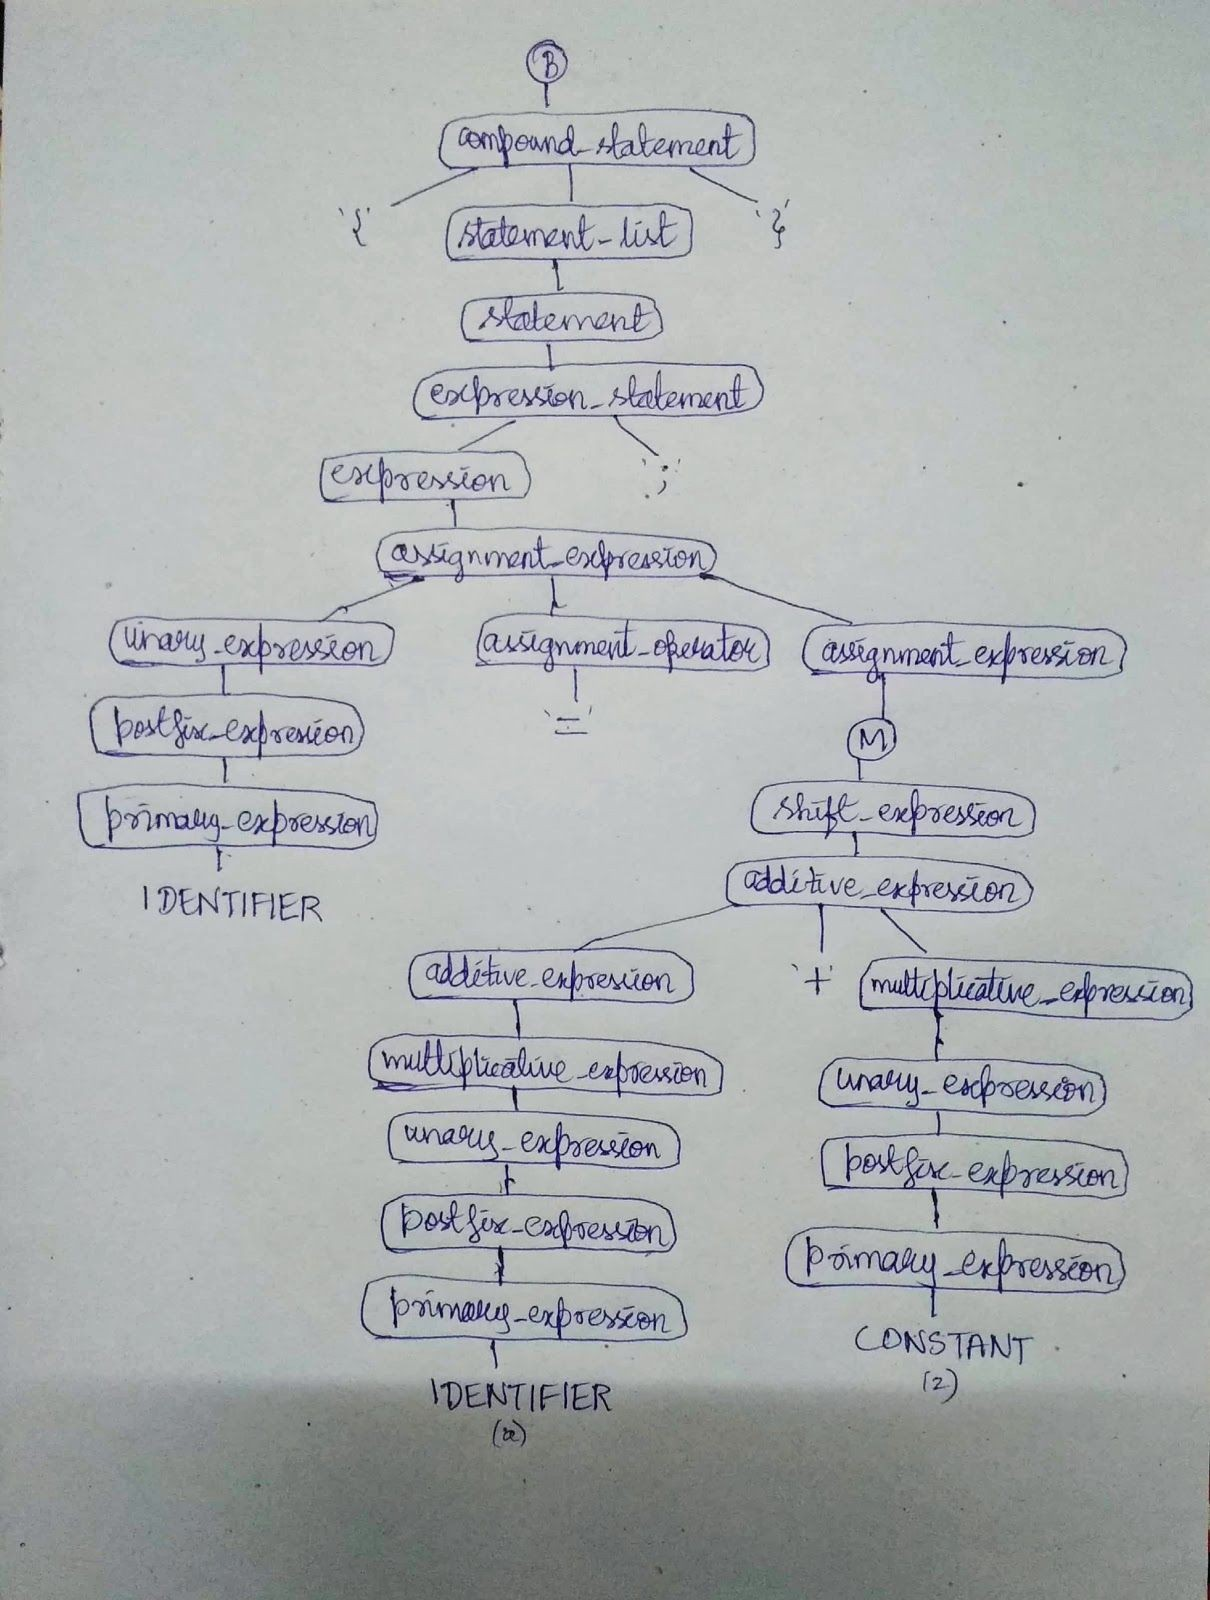 B
compound_statement
'{' '}'
statement_list
statement
expression_statement
expression ';'
assignment_expression
unary_expression assignment_operator assignment_expression
postfix_expression '=' M
primary_expression shift_expression
IDENTIFIER additive_expression
additive_expression '+' multiplicative_expression
multiplicative_expression unary_expression
unary_expression postfix_expression
postfix_expression primary_expression
primary_expression CONSTANT
IDENTIFIER (2)